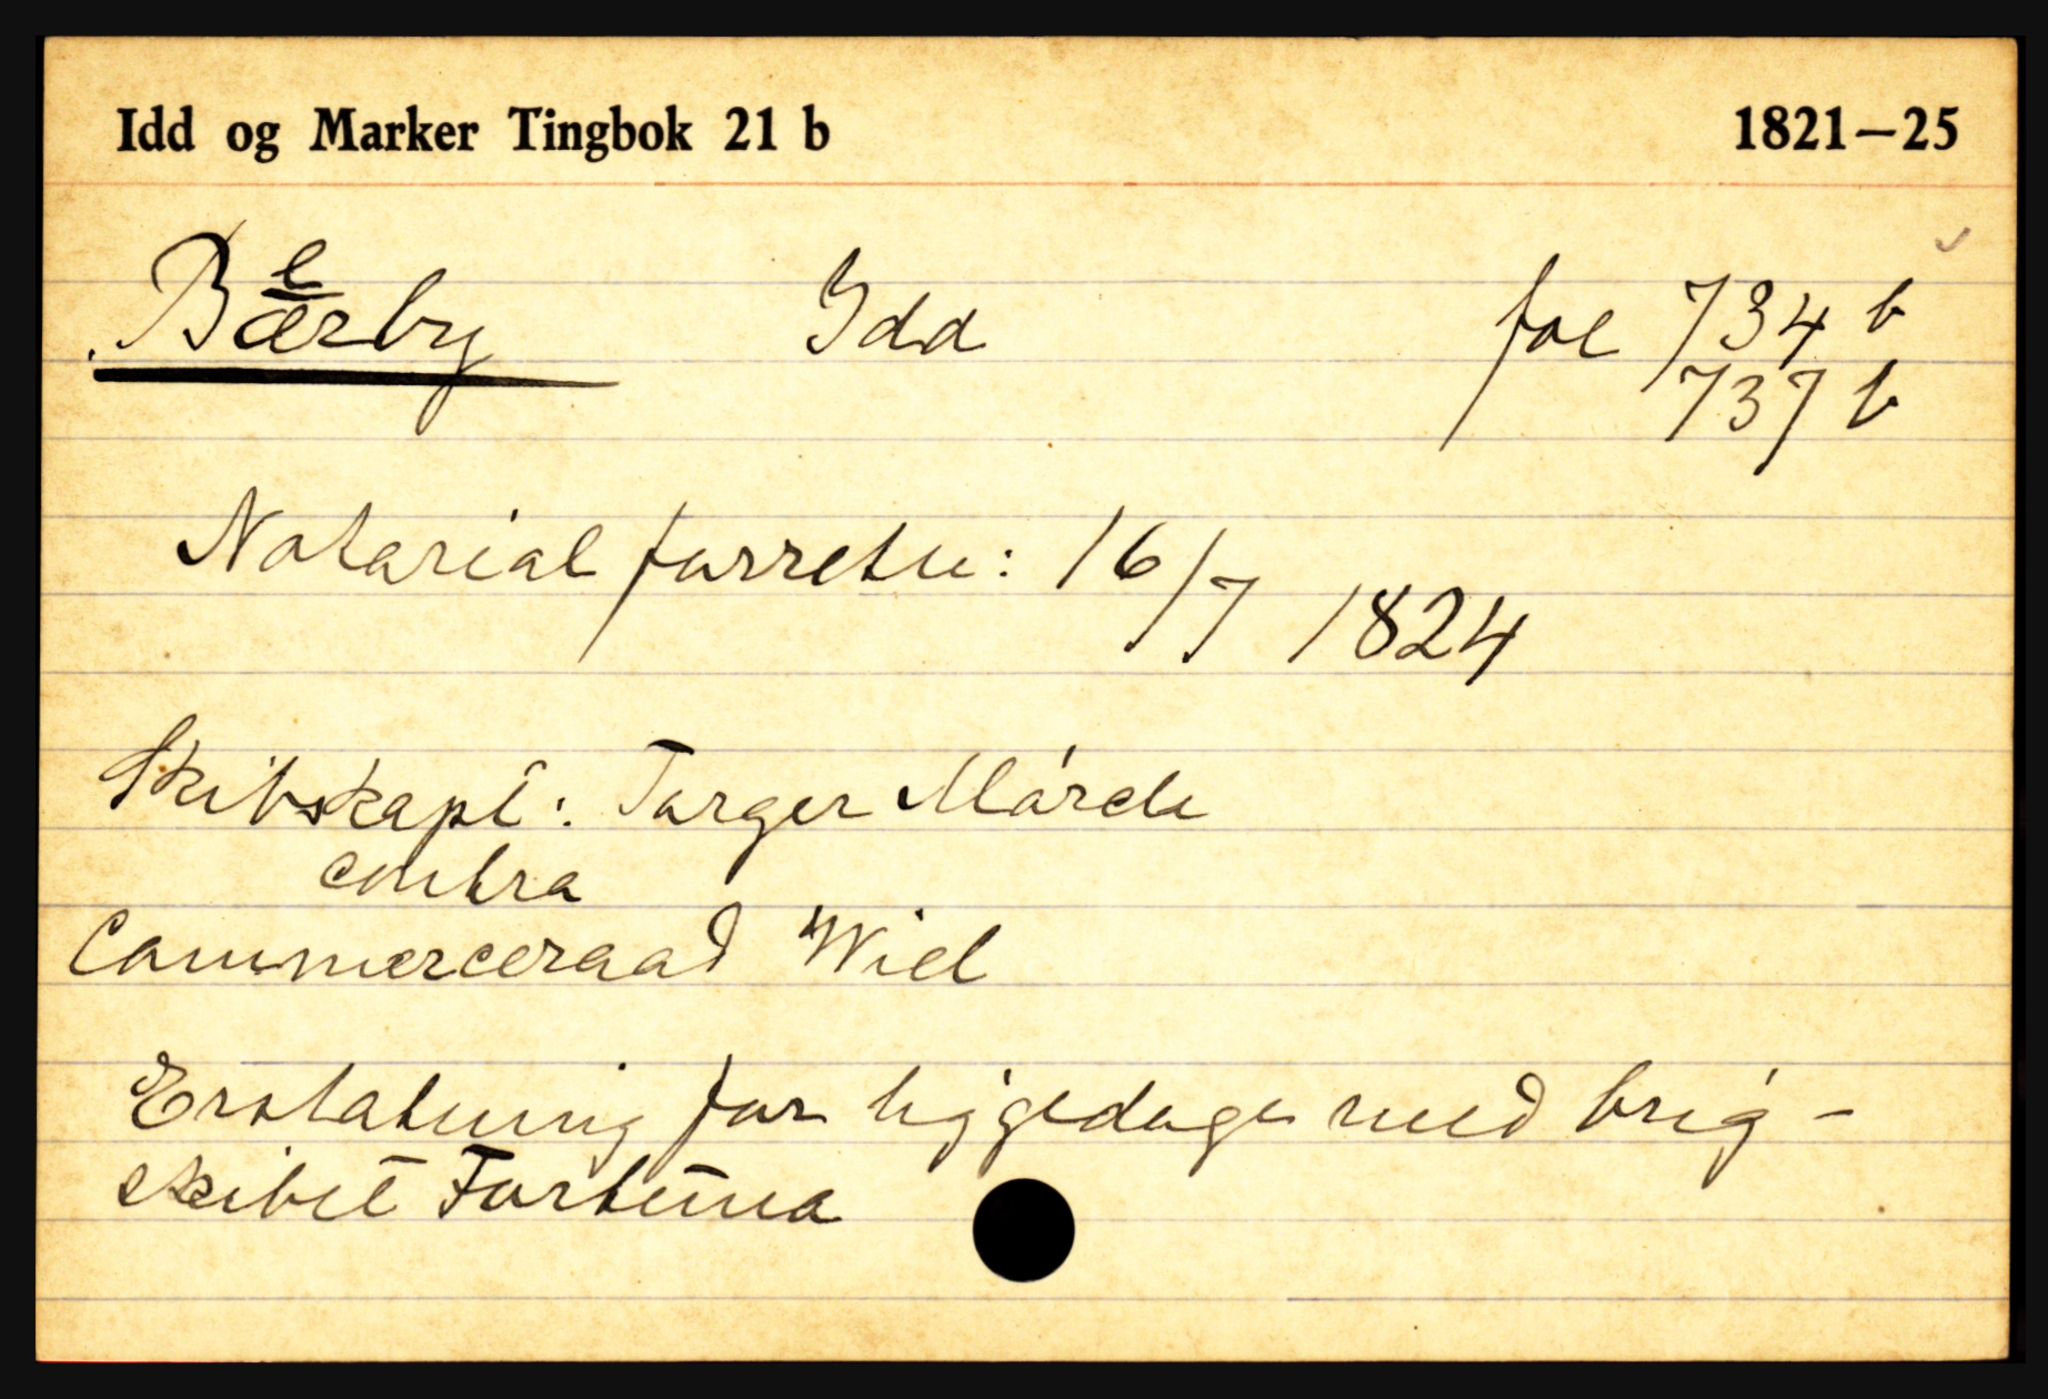 Idd og Marker Tingbok 21 b 1821–25
Bærby Idd fol 734 b
e
737 b
Notarial forretn: 16/7 1824
Skibskapt: Torger Mórch
contra
Commerceraad Wiel
Erstatning for liggedage med brig-
skibet Fortuna